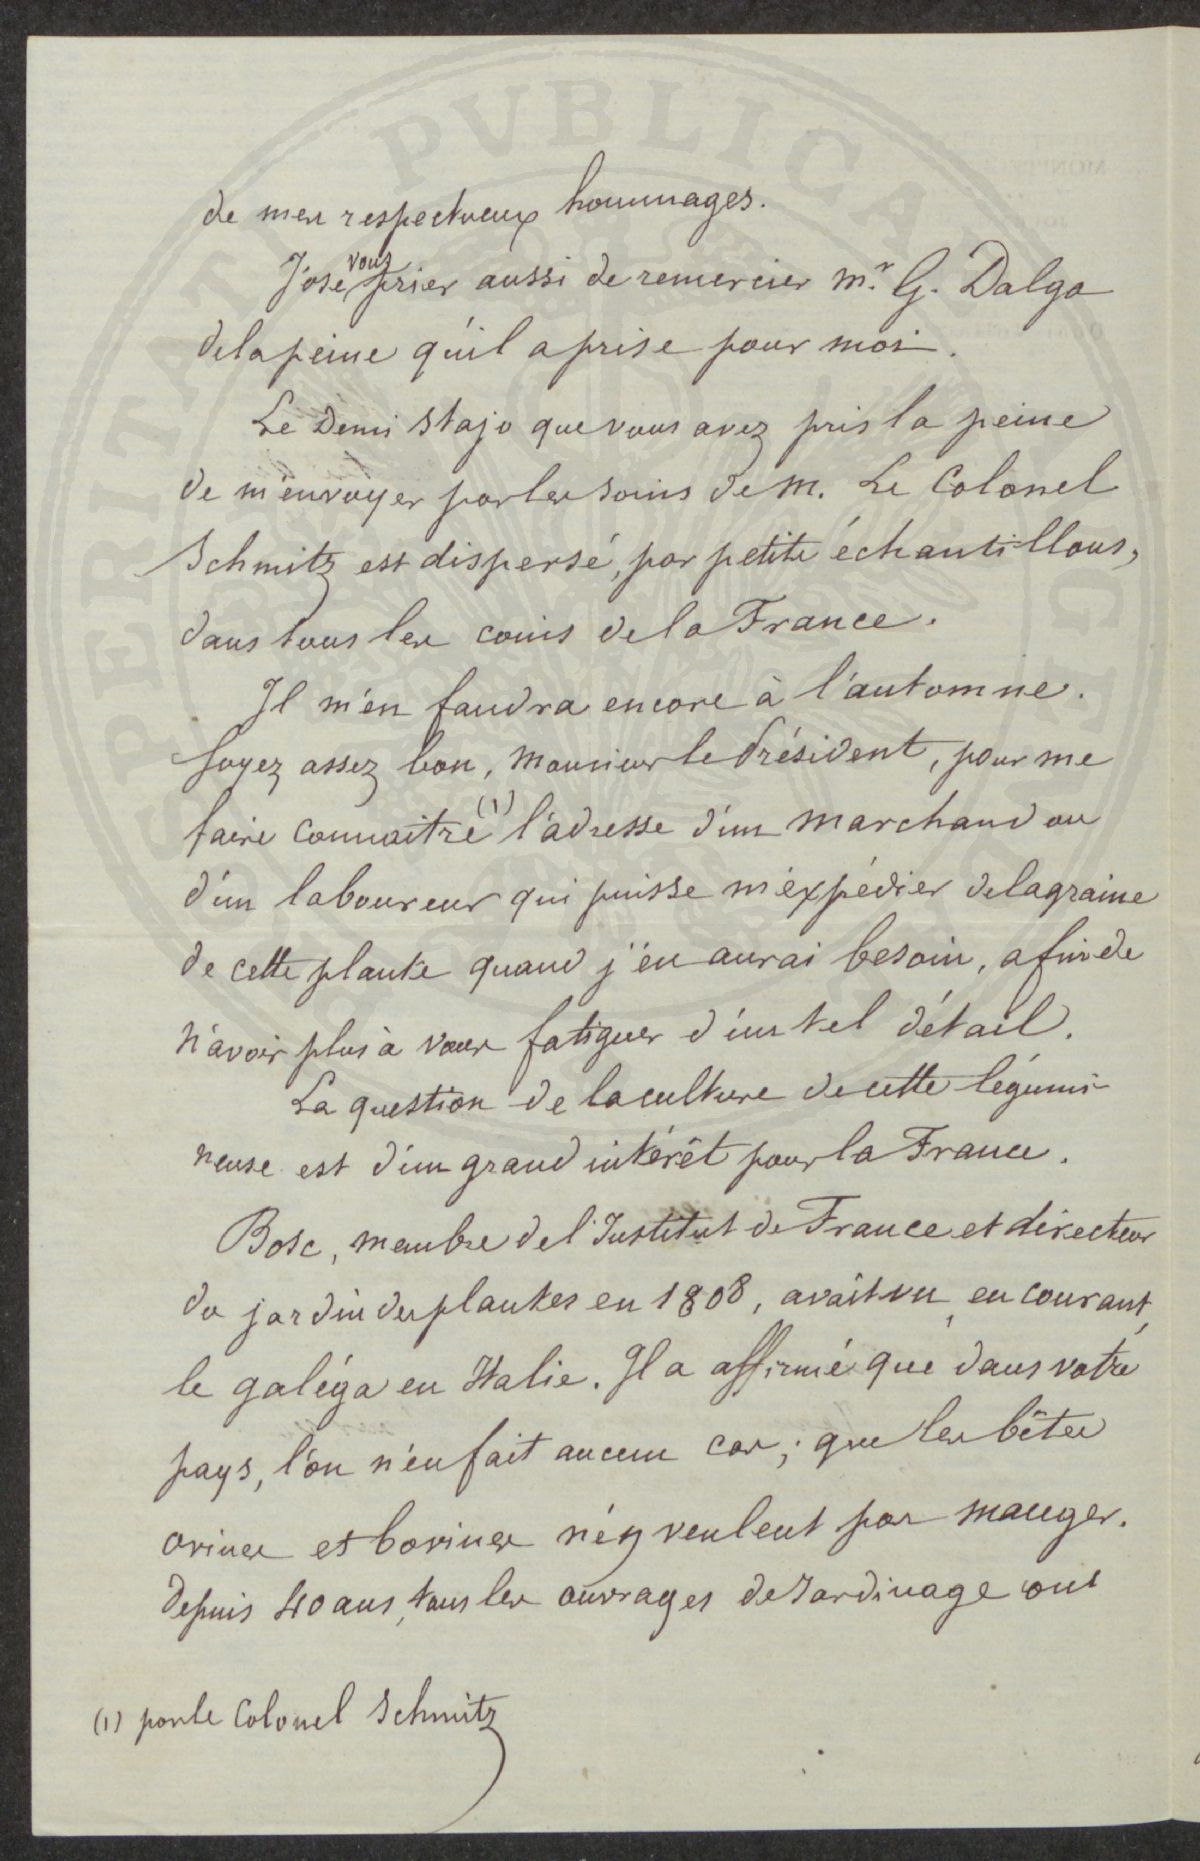 de mes respectueux hommages.
J'ose vous prier aussi de remercier Mr. G. Dalgo
de la peine qu'il a prise pour moi.
Le Demi Stajo que vous avez pris la peine
de m'envoyer par les soins de M. Le Colonel
Schmitz est dispersé, par petits échantillons,
dans tous les coins de la France.
Il m'en faudra encore à l'automne.
Soyez assez bon, Monsieur le Président, pour me
faire connaître (1) l'adresse d'un marchand ou
d'un laboureur qui puisse m'expédier de la graine
de cette plante quand j'en aurai besoin, afin de
n'avoir plus à vous fatiguer d'un tel détail.
La question de la culture de cette légumi-
neuse est d'un grand intérêt pour la France.
Bosc, membre de l'Institut de France et directeur
du jardin des plantes en 1808, avait vu, en courant,
le galéga en Italie. Il a affirmé que dans votre
pays, l'on n'en fait aucun cas; que les bêtes
ovines et bovines n'en veulent pas manger.
Depuis 40 ans, tous les ouvrages de Jardinage ont
(1) par le Colonel Schmitz
PVBLICA